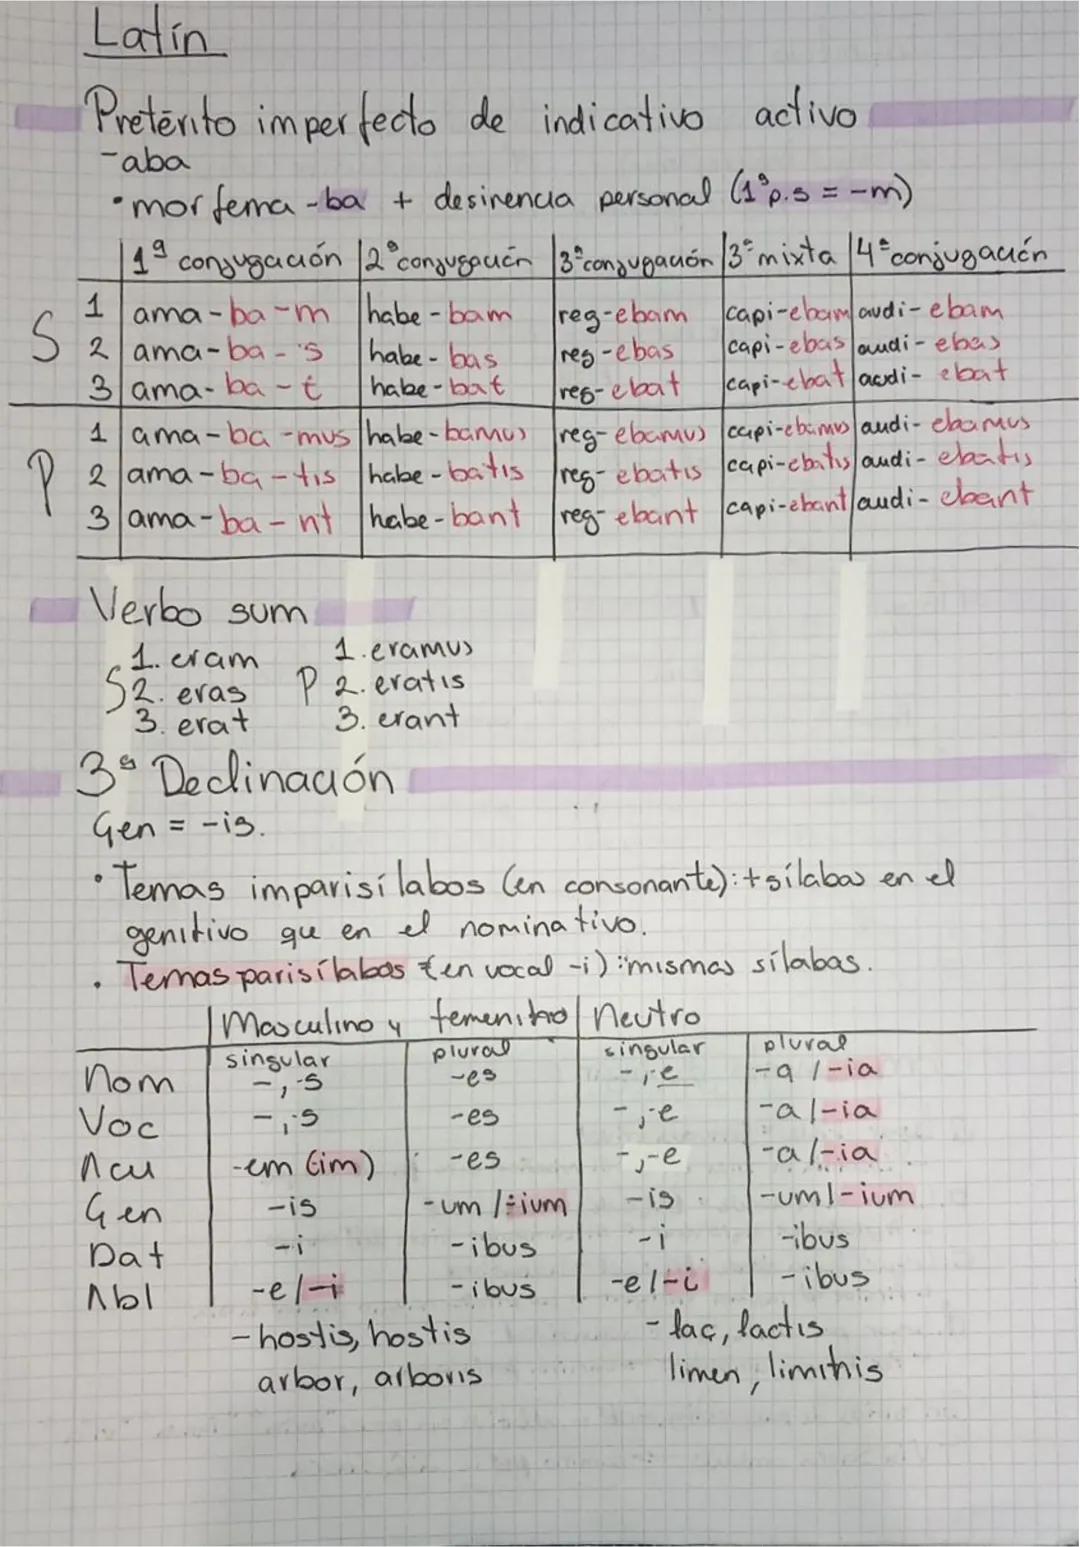 Latín
Pretérito imperfecto de indicativo activo
-aba
• morfema -ba + desinencia personal (1ª p.s = -m)
1ª conjugación 2ª conjugación 3ª conjugación 3ª mixta 4ª conjugación
S
1 ama-ba-m habe-bam reg-ebam capi-ebam audi-ebam
2 ama-ba-s habe-bas reg-ebas capi-ebas audi-ebas
3 ama-ba-t habe-bat reg-ebat capi-ebat audi-ebat
P
1 ama-ba-mus habe-bamus reg-ebamus capi-ebamus audi-ebamus
2 ama-ba-tis habe-batis reg-ebatis capi-ebatis audi-ebatis
3 ama-ba-nt habe-bant reg-ebant capi-ebant audi-ebant
Verbo sum
1. eram 1. eramus
S 2. eras P 2. eratis
3. erat 3. erant
3ª Declinación
Gen = -is.
• Temas imparisílabos (en consonante): + sílabas en el
genitivo que en el nominativo.
• Temas parisílabos (en vocal -i): mismas sílabas.
Masculino y femenino Neutro
singular plural singular plural
Nom -, -s -es -, -e -a / -ia
Voc -, -s -es -, -e -a / -ia
Acu -em (im) -es -, -e -a / -ia
Gen -is -um / -ium -is -um / -ium
Dat -i -ibus -i -ibus
Abl -e / -i -ibus -e / -i -ibus
- hostis, hostis - lac, lactis
arbor, arboris limen, liminis